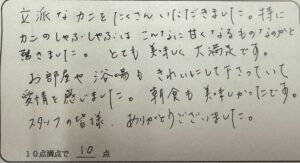 立派なカニをたくさんいただきました。特に
カニのしゃぶしゃぶは こんなに甘くなるものなのかと
驚きました。とても美味しく大満足です。
お部屋や浴場も きれいにして下さっていて
愛情を感じました。朝食も美味しかったです。
スタッフの皆様、ありがとうございました。
10点満点で 10 点